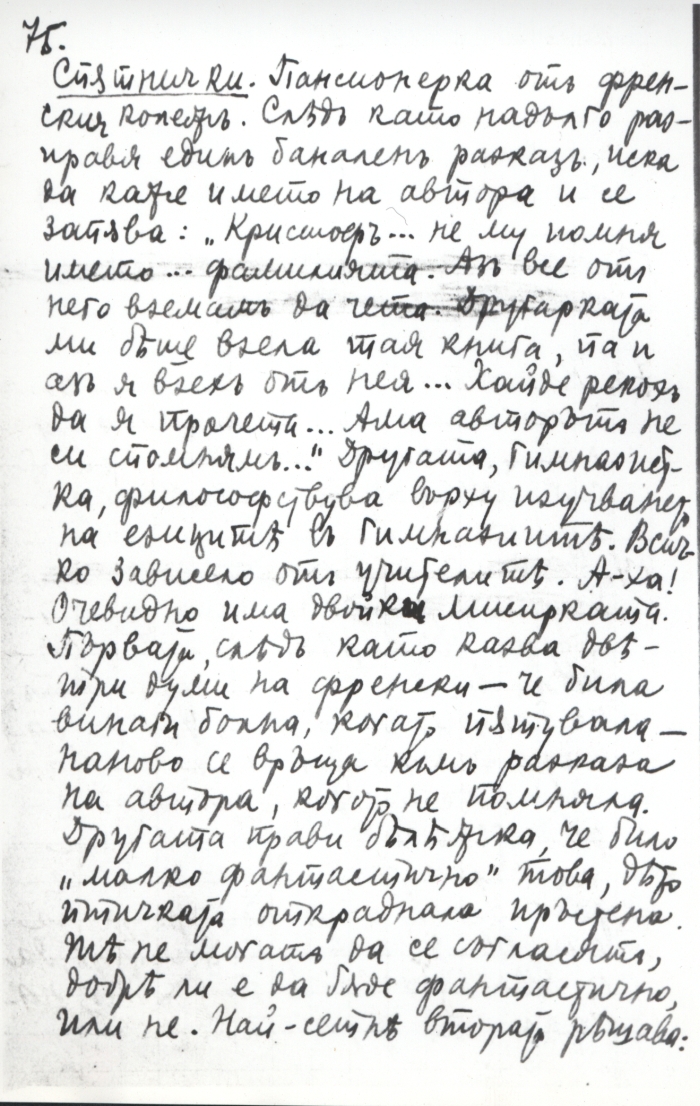 75.
Спѫтнички. Пансионерка отъ френ-
ския колежъ. Слѣдъ като надълго раз-
правя единъ баналенъ разказъ, иска
да каже името на автора и се
запъва: „Кристоеръ... не му помня
името... фамилията. Азъ все отъ
него вземамъ да чета. Другарката
ми бѣше взела тая книга, па и
азъ я взехъ отъ нея... Хайде рекохъ
да я прочета... Ама авторътъ не
си спомнямъ..." Другата, гимназист-
ка, философствува върху изучването
на езицитѣ въ гимназиитѣ. Всич-
ко зависело отъ учителитѣ. А-ха!
Очевидно има двойки мисирката.
Първата, слѣдъ като казва двѣ-
три думи на френски — че била
винаги болна, когато пѫтувала —
наново се връща къмъ разказа
на автора, когото не помняла.
Другата прави бѣлѣжка, че било
„малко фантастично" това, дѣто
птичката откраднала пръстена.
Тѣ не могатъ да се съгласятъ,
добрѣ ли е да бѫде фантастично,
или не. Най-сетнѣ втората рѣшава: